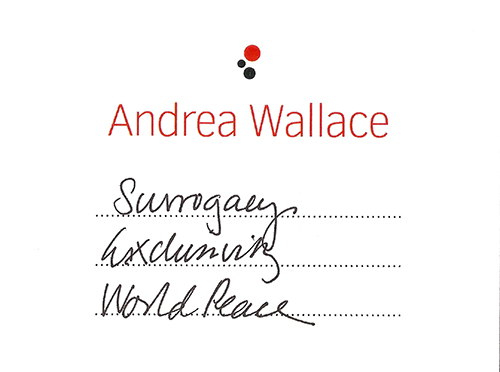 Andrea Wallace
Surrogacy
Exclusivity
World Peace